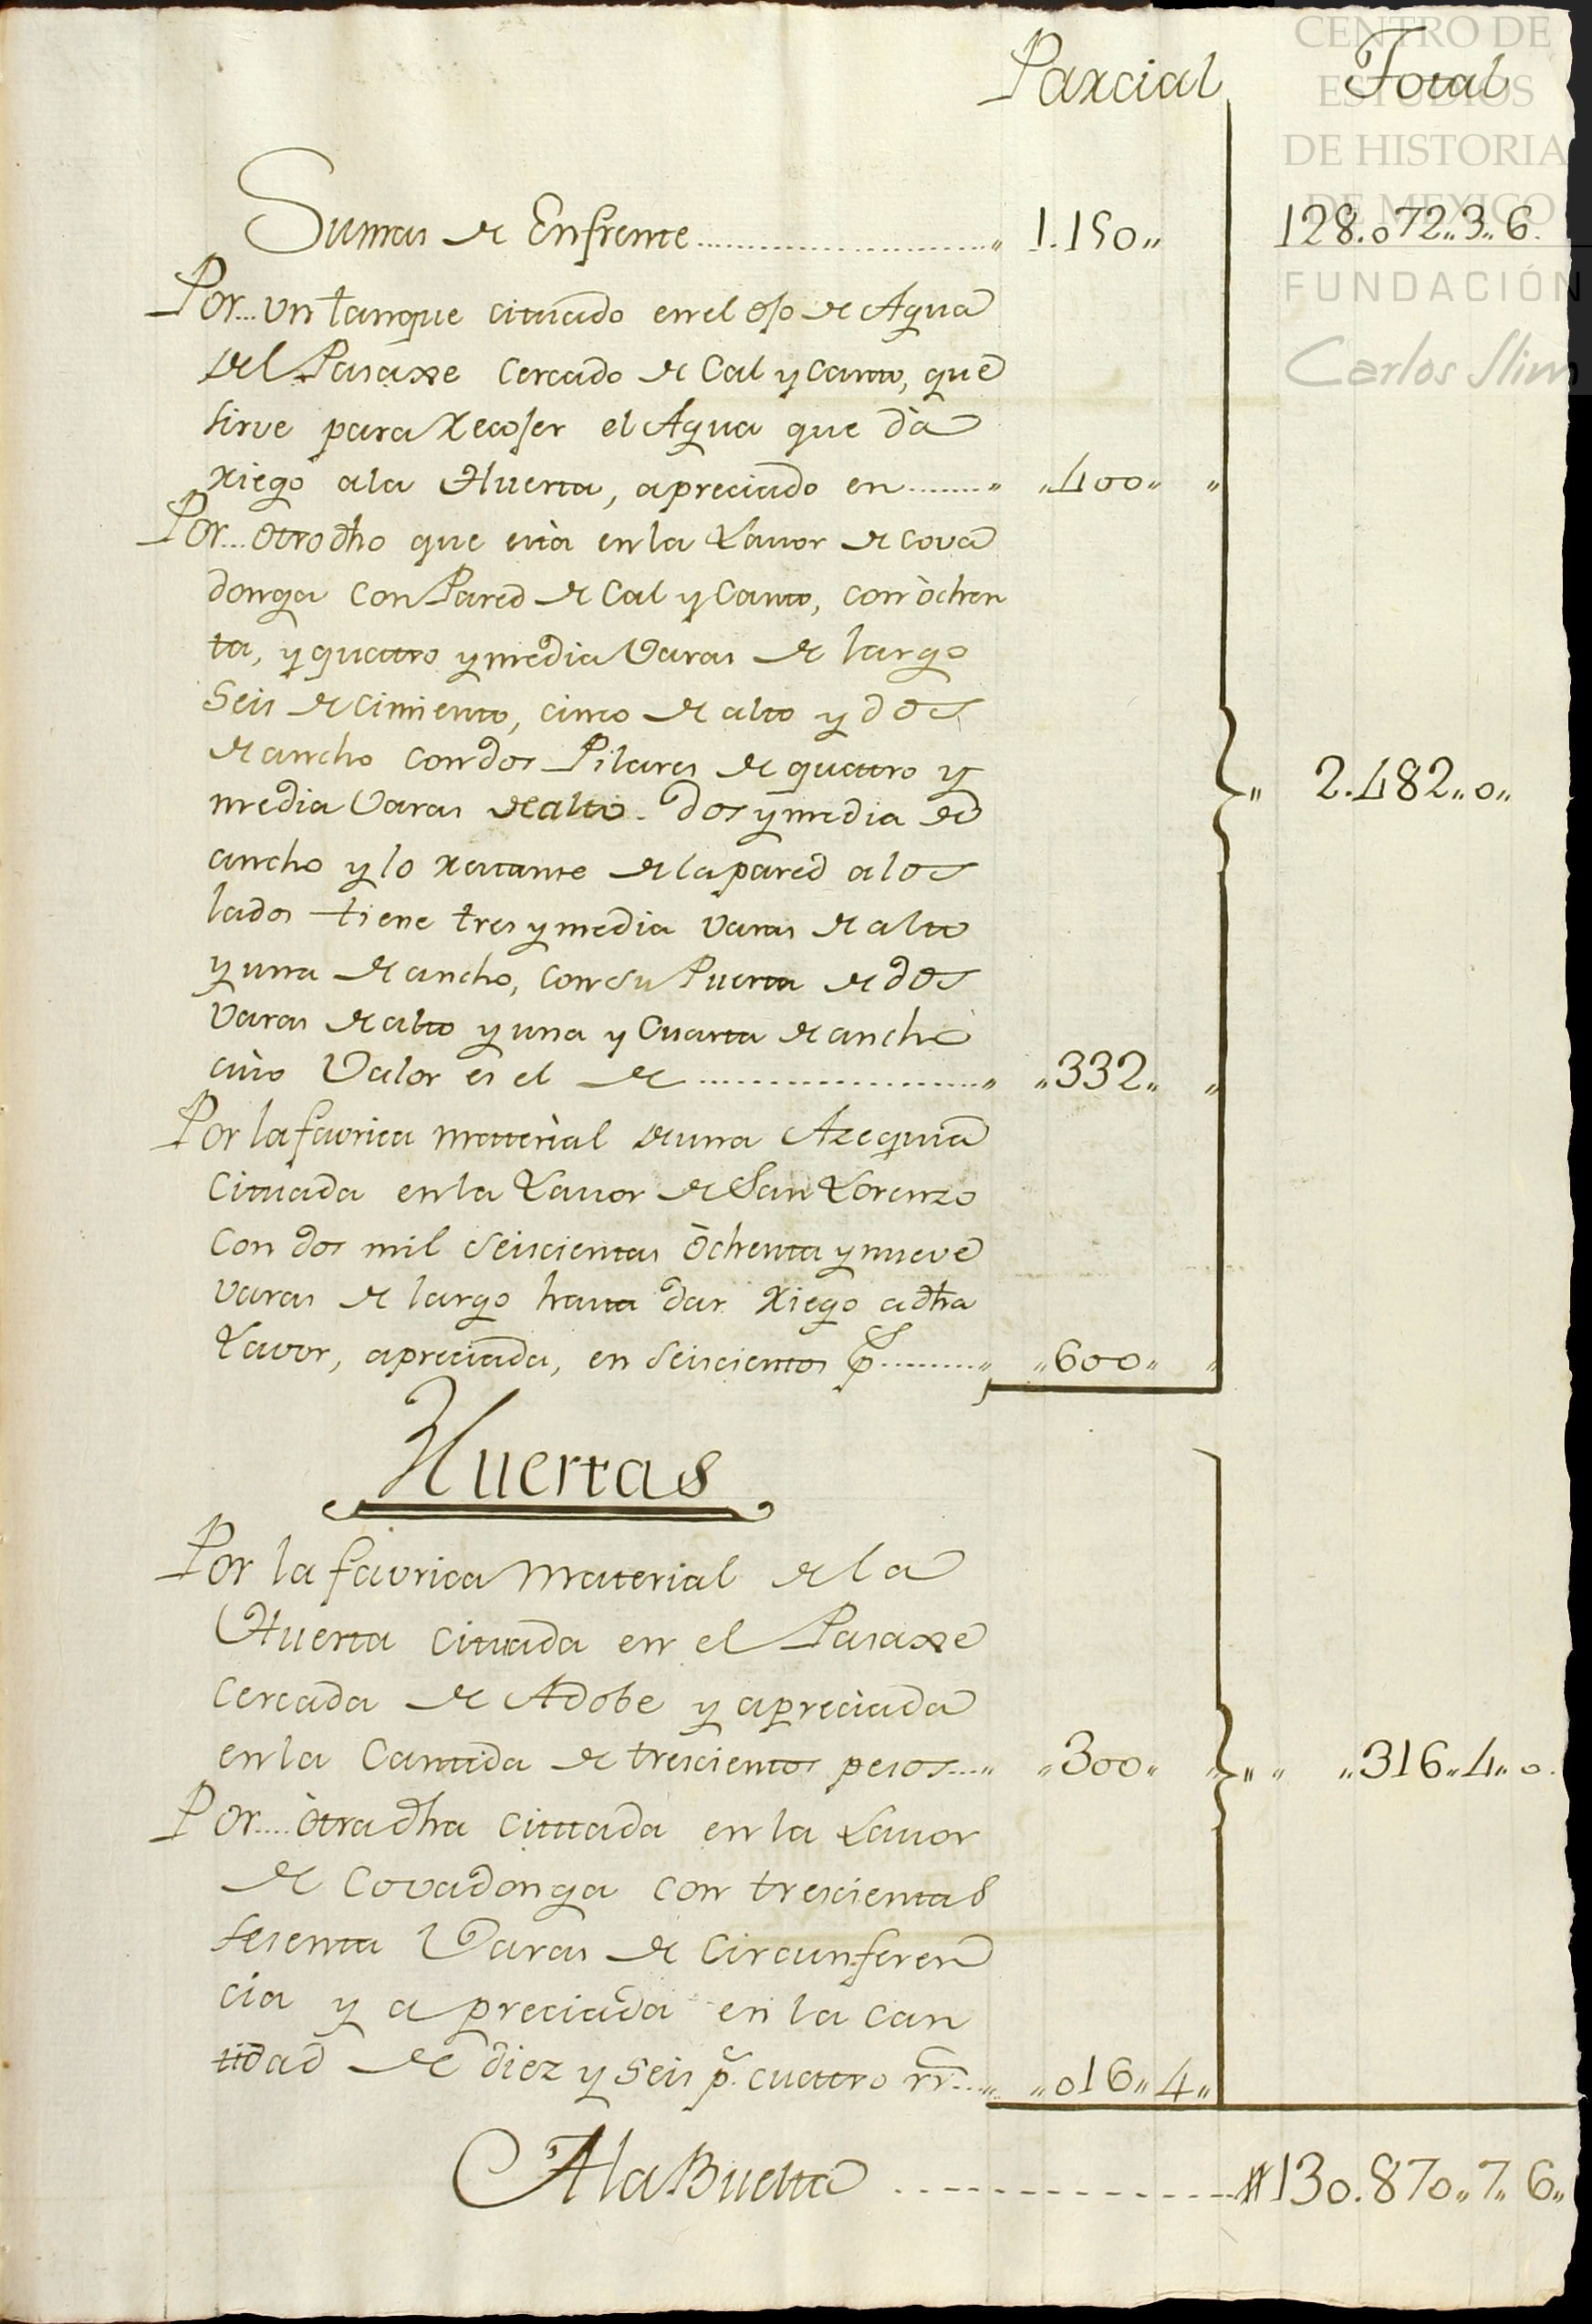 CENTRO DE
ESTUDIOS
DE HISTORIA
DE MEXICO
FUNDACIÓN
Carlos Slim
Parcial Total
Sumas de Enfrente .................... " 1.150,, 128.072,,3,,6.
Por... un tanque cituado en el ojo de Agua
del Pasaxe Cercado de Cal y canto, que
sirve para recojer el Agua que dà
riego a la Huerta, apreciado en ........ " ,,400,, "
Por... otro dho que està en la Lavor de cova
donga con Pared de Cal y Canto, con òchen
ta, y quatro y media Varas de largo
Seis de cimiento, cinco de alto y dos
de ancho con dos Pilares de quatro y
media Varas de alto. dos y media de
ancho y lo restante de la pared a los
lados tiene tres y media varas de alto
y una de ancho, con su Puerta de dos
Varas de alto y una y Cuarta de ancho
cuio Valor es el de .................... " ,,332,, "
} " 2.482,,0,,
Por la favrica material de una Azequia
Cituada en la Lavor de San Lorenzo
Con dos mil seiscientas òchenta y nueve
varas de largo hasta dar riego a dha
Lavor, apreciada, en seiscientos ps ......... " ,,600,, "
Huertas
Por la favrica Material de la
Huerta cituada en el Pasaxe
cercada de Adobe y apreciada
en la Cantida de trescientos pesos .... " ,,300,, " } " " ,,316,,4,,0.
Por.... òtra dha cituada en la Lavor
de Covadonga con trescientas
sesenta Varas de Circunferen
cia y apreciada en la can
tidad de diez y seis p. cuatro rr.... " ,,016,,4,,
A la Buelta .............. 130.870,,7,,6,,